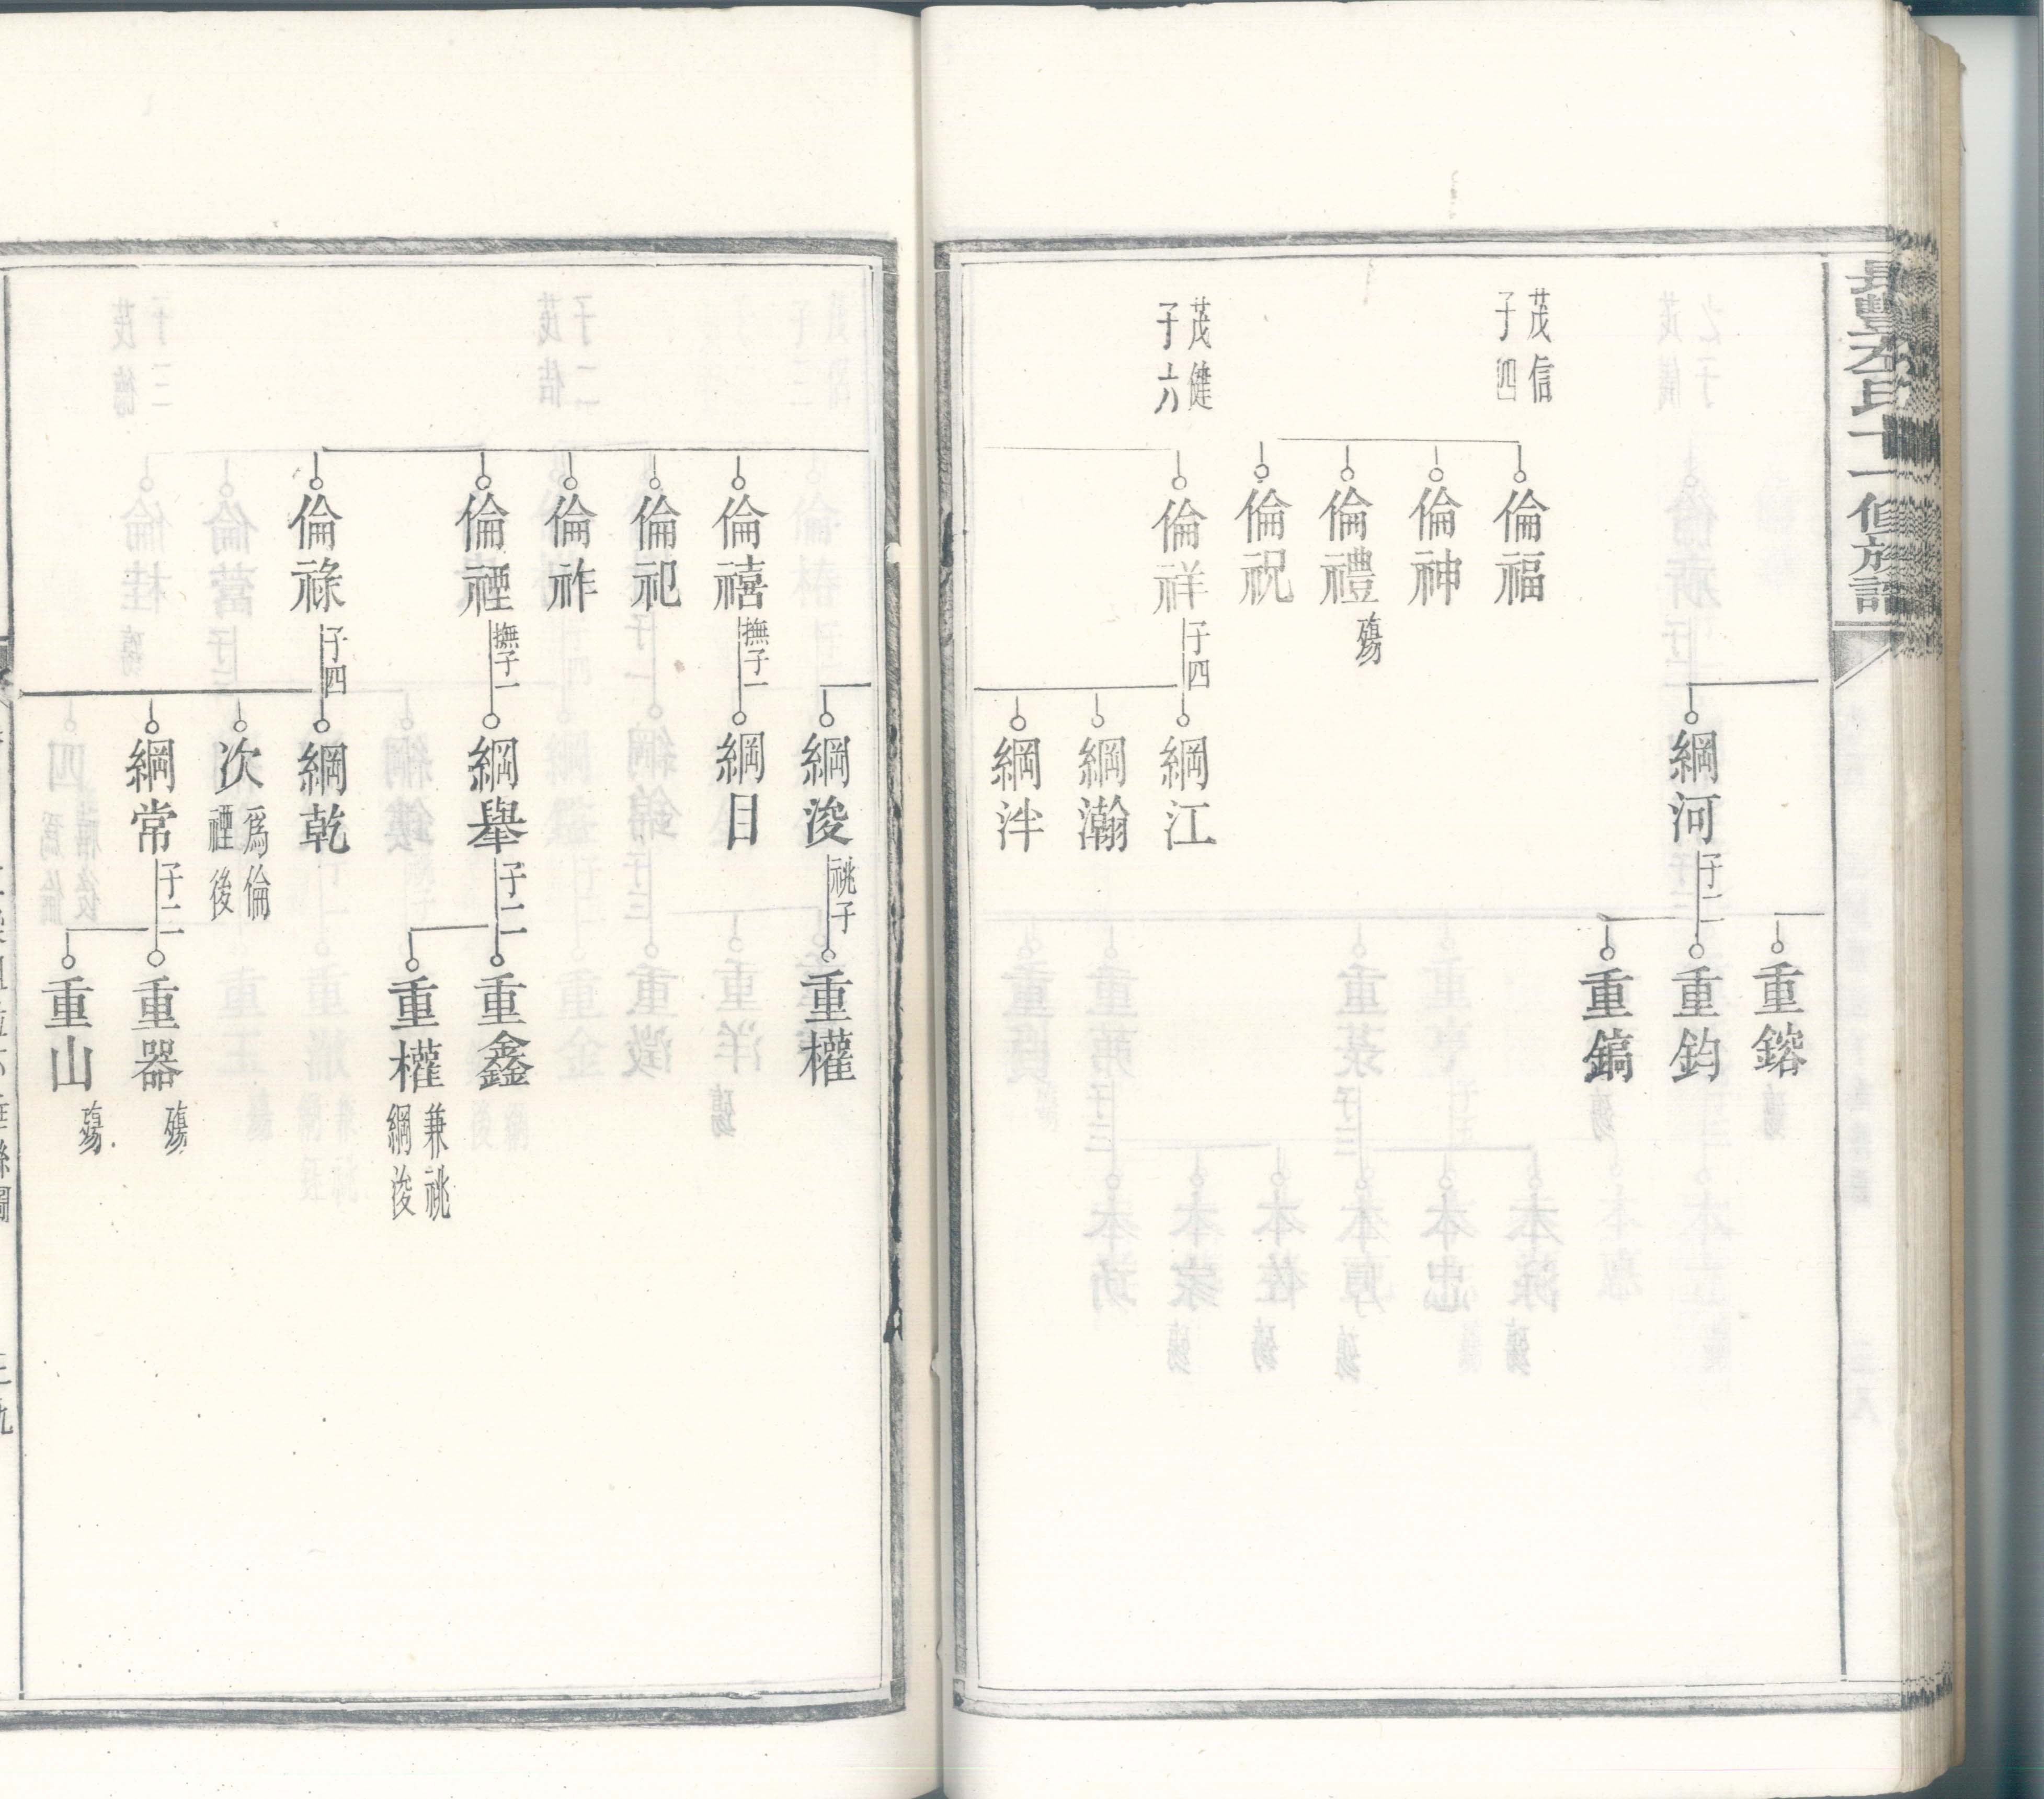 族譜
重鎔
綱河
子二
重鈞
重鎬
茂信
子四
倫福
倫神
倫禮
殤
倫祝
茂健
子六
倫祥
子四
綱江
綱瀚
綱泮
綱浚
祧子
重權
倫禧
撫子一
綱日
倫祀
倫祚
倫禋
撫子一
綱舉
子二
重鑫
重權
兼祧
綱浚
倫祿
子四
綱乾
次
為倫
禋後
綱常
子二
重器
殤
重山
殤